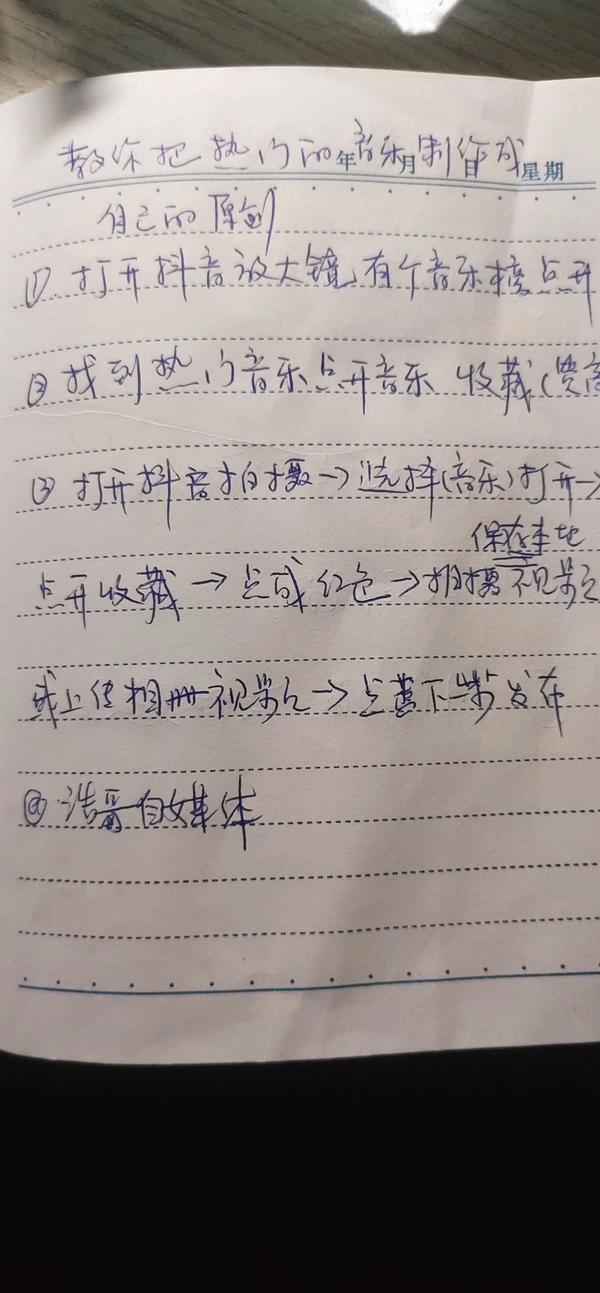 教你把热门的音乐制作成
年 月 日 星期
自己的原创
① 打开抖音放大镜,有个音乐榜点开
② 找到热门音乐点开音乐 收藏(
③ 打开抖音拍摄→选择(音乐)打开→
保存本地
点开收藏→点成红色→拍摄视频
或上传相册视频→点击下一步发布
@浩哥自媒体